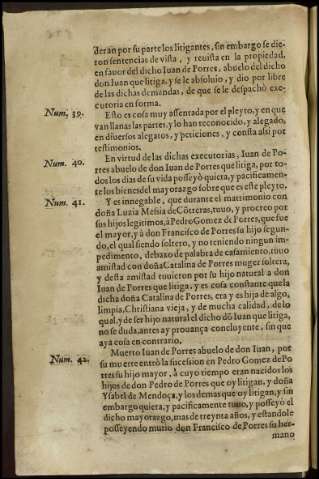 deran por su parte los litigantes, sin embargo se die-
ron sentencias de vista, y reuista en la propiedad,
en fauor del dicho Iuan de Porres, abuelo del dicho
don Iuan que litiga, y se le absoluio, y dio por libre
de las dichas demandas, de que se le despachò exe-
cutoria en forma.
Num. 39.
Esto es cosa muy assentada por el pleyto, y en que
van llanas las partes, y lo han reconocido, y alegado,
en diuersos alegatos, y peticiones, y consta assi por
testimonios.
Num. 40.
En virtud de las dichas executorias, Iuan de Po-
rres abuelo de don Iuan de Porres que litiga, por to-
dos los dias de su vida posseyò quieta, y pacificamen-
te los bienes del mayorazgo sobre que es este pleyto.
Num. 41.
Y es innegable, que durante el matrimonio con
doña Luzia Mesia de Cõtreras, tuuo, y procreo por
sus hijos legitimos, à Pedro Gomez de Porres, que fue
el mayor, y à don Francisco de Porres su hijo segun-
do, el qual siendo soltero, y no teniendo ningun im-
pedimento, debaxo de palabra de casamiento, tuuo
amistad con doña Catalina de Porres muger soltera,
y desta amistad tuuieron por su hijo natural a don
Iuan de Porres que litiga, y es cosa constante que la
dicha doña Catalina de Porres, era y es hija de algo,
limpia, Christiana vieja, y de mucha calidad, de lo
qual, y de ser hijo natural el dicho dõ Iuan que litiga,
no se duda, antes ay prouança concluyente, sin que
aya cosa en contrario.
Num. 42.
Muerto Iuan de Porres abuelo de don Iuan, por
su muerte entrò la sucession en Pedro Gomez de Po
rres su hijo mayor, à cuyo tiempo eran nacidos los
hijos de don Pedro de Porres que oy litigan, y doña
Ysabel de Mendoça, y los demas que oy litigan, y sin
embargo quieta, y pacificamente tuuo, y posseyò el
dicho mayorazgo, mas de treynta años, y estandole
posseyendo murio don Francisco de Porres su her-
mano